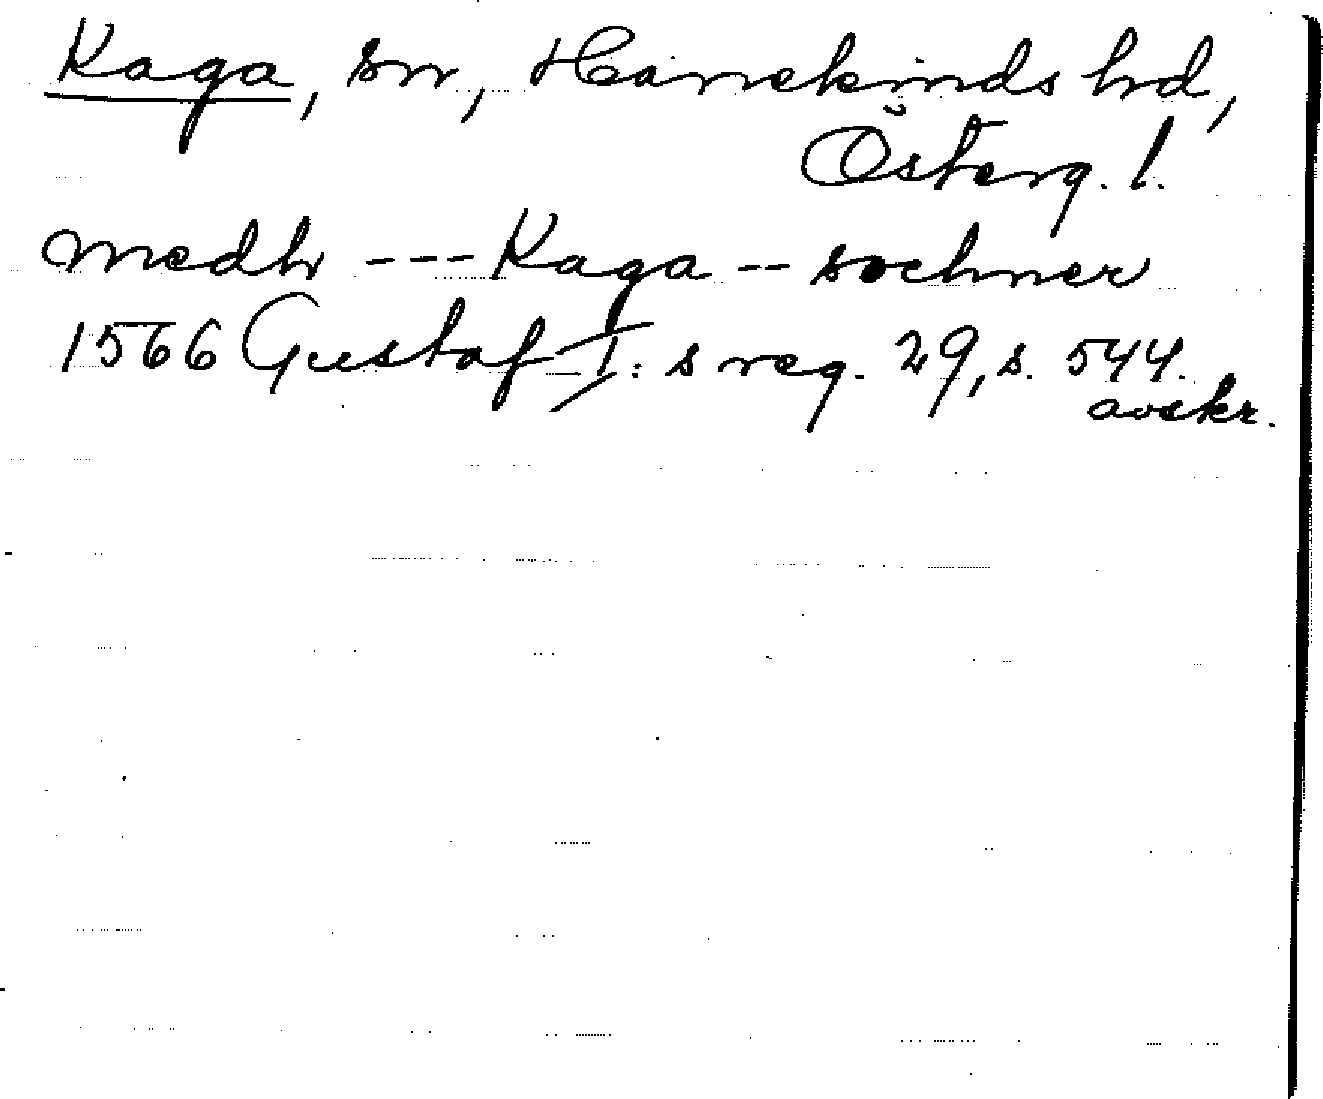 Kaga, sn, Hanekinds hrd,
Österg. l.
medh --- Kaga -- sochner
1566 Gustaf I:s reg. 29, s. 544.
avskr.